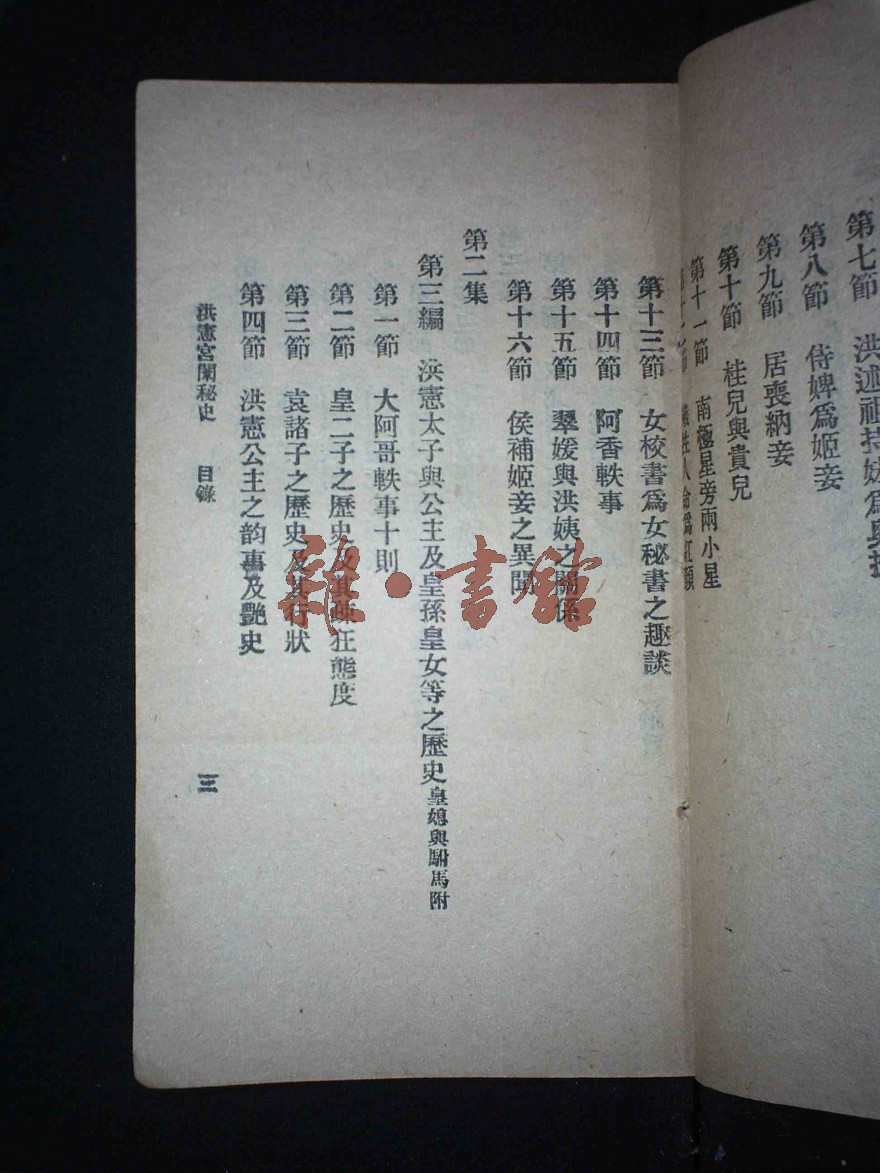 第七節　洪述祖持妹爲
第八節　侍婢爲姬妾
第九節　居喪納妾
第十節　桂兒與貴兒
第十一節　南極星旁兩小星
第十三節　女校書爲女秘書之趣談
第十四節　阿香軼事
第十五節　翠媛與洪姨之關係
第十六節　侯補姬妾之異聞
第二集
第三編　洪憲太子與公主及皇孫皇女等之歷史皇媳與駙馬附
第一節　大阿哥軼事十則
第二節　皇二子之歷史及其疎狂態度
第三節　袁諸子之歷史及其行狀
第四節　洪憲公主之韵事及艷史
洪憲宮闈秘史　目錄
三
雜·書館